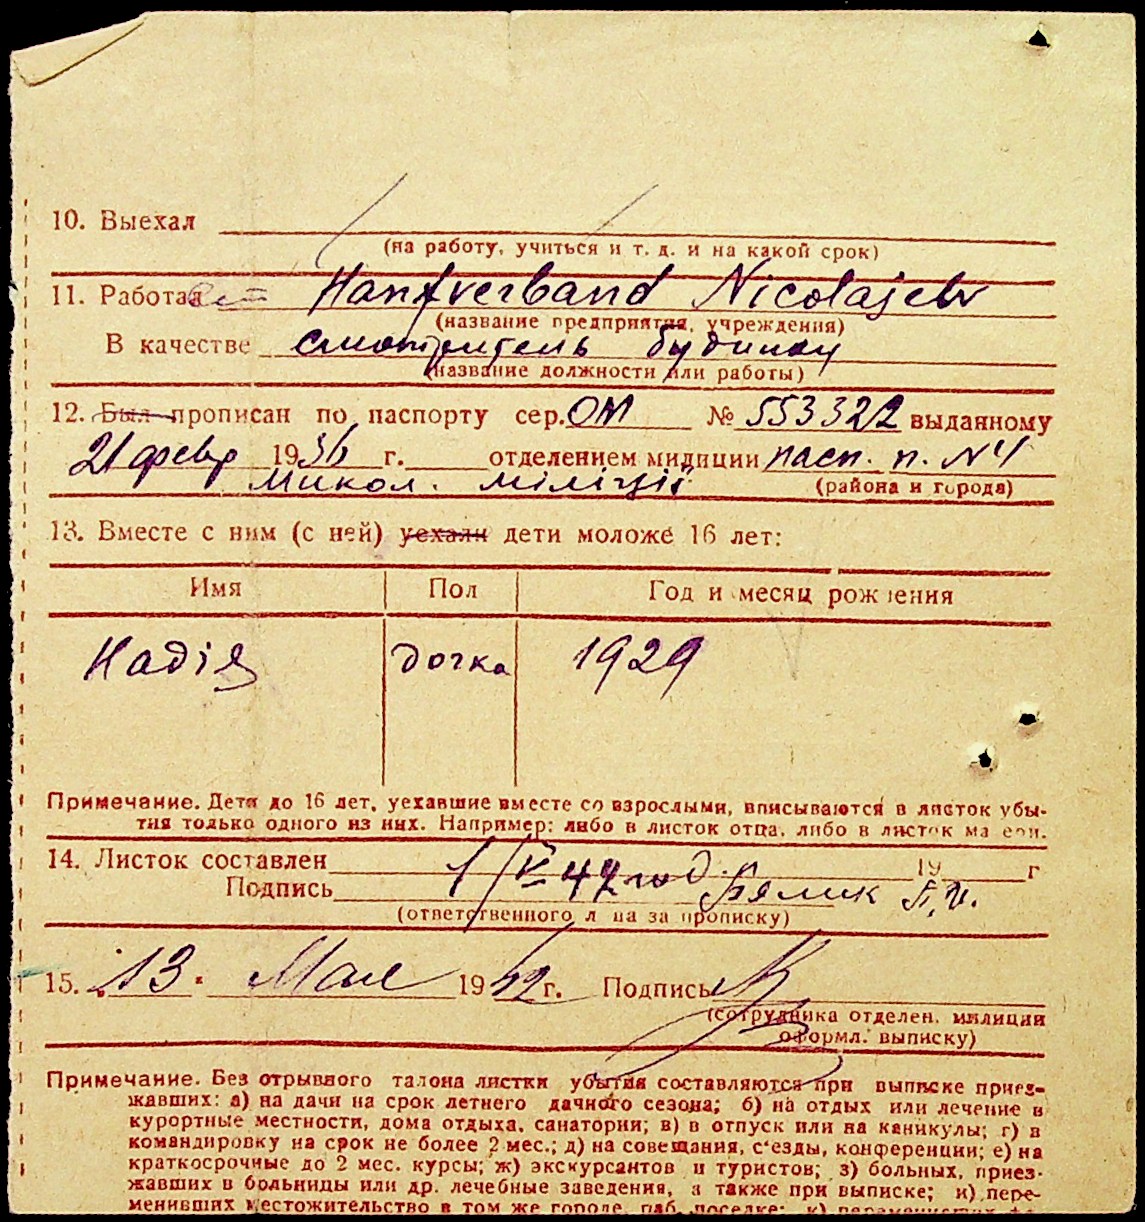 10. Выехал
(на работу, учиться и т. д. и на какой срок)
11. Работает Hanfverband Nicolajew
(название предприятия, учреждения)
В качестве смотритель будинку
(название должности или работы)
12. Был прописан по паспорту сер. ОМ № 553322 выданному
21 февр 1936 г. отделением милиции пасп. п. №4
Микол. міліції (района и города)
13. Вместе с ним (с ней) уехали дети моложе 16 лет:
Имя Пол Год и месяц рождения
Надія дочка 1929
Примечание. Дети до 16 лет, уехавшие вместе со взрослыми, вписываются в листок убы-
тия только одного из них. Например: либо в листок отца, либо в листок матери.
14. Листок составлен 1/V 42 год. 19 г
Подпись Бялик
(ответственного лица за прописку)
15. 13. Мая 1942 г. Подпись
(сотрудника отделен. милиции
оформл. выписку)
Примечание. Без отрывного талона листки убытия составляются при выписке приез-
жавших: а) на дачи на срок летнего дачного сезона; б) на отдых или лечение в
курортные местности, дома отдыха, санатории; в) в отпуск или на каникулы; г) в
командировку на срок не более 2 мес.; д) на совещания, с'езды, конференции; е) на
краткосрочные до 2 мес. курсы; ж) экскурсантов и туристов; з) больных, приез-
жавших в больницы или др. лечебные заведения, а также при выписке; и) пере-
менивших местожительство в том же городе, раб. поселке; к)